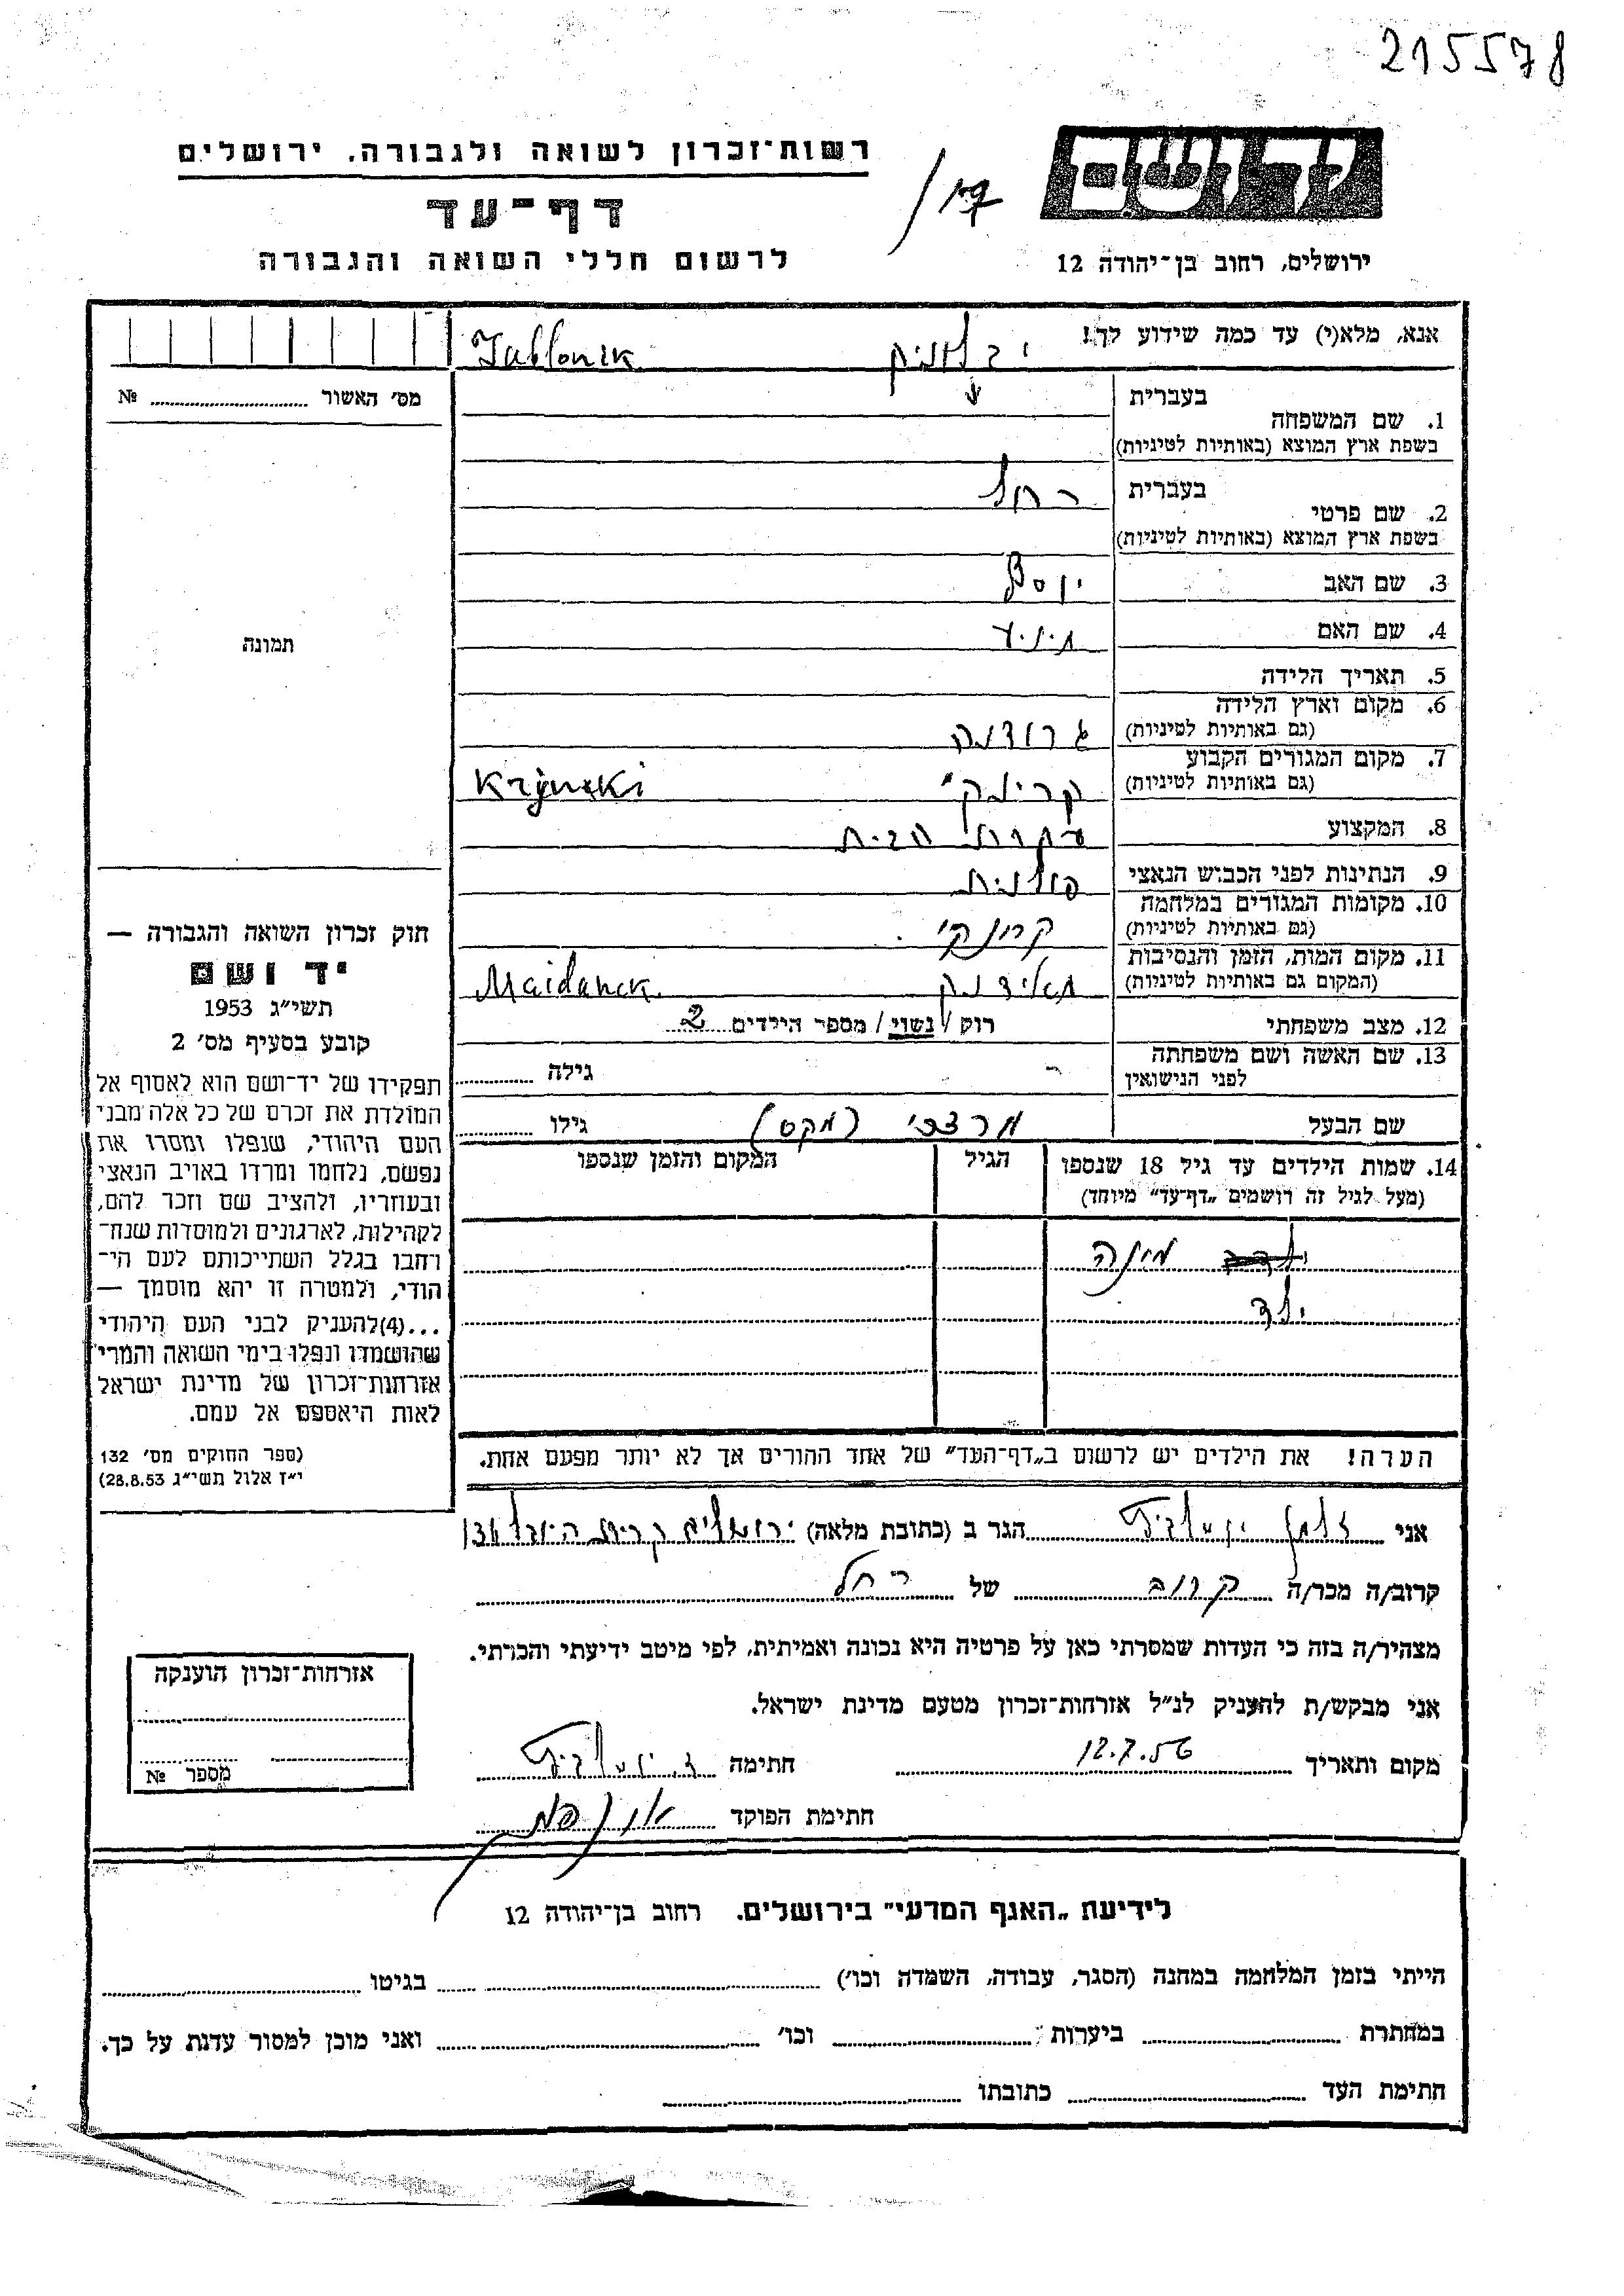 215578
רשות־זכרון לשואה ולגבורה. ירושלים
דף־עד
לרשום חללי השואה והגבורה
יד ושם
ירושלים, רחוב בן־יהודה 12
אנא, מלא(י) עד כמה שידוע לך!
יבלוניק Jablonik
מס׳ האשור № ....................
1. שם המשפחה בעברית
בשפת ארץ המוצא (באותיות לטיניות)
2. שם פרטי בעברית רחל
בשפת ארץ המוצא (באותיות לטיניות)
3. שם האב יוסף
4. שם האם
תמונה
5. תאריך הלידה
6. מקום וארץ הלידה
(גם באותיות לטיניות) גרודנה
7. מקום המגורים הקבוע
(גם באותיות לטיניות) קרינקי Krijnski
8. המקצוע עקרת הבית
9. הנתינות לפני הכבוש הנאצי פולנית
10. מקומות המגורים במלחמה
(גם באותיות לטיניות) קרינקי
11. מקום המות, הזמן והנסיבות
(המקום גם באותיות לטיניות) מאידנק Maidanek
12. מצב משפחתי רוק / נשוי / מספר הילדים 2
13. שם האשה ושם משפחתה
לפני הנישואין גילה
שם הבעל מרדכי (מקס) גילו
14. שמות הילדים עד גיל 18 שנספו הגיל המקום והזמן שנספו
(מעל לגיל זה רושמים „דף־עד״ מיוחד)
מינה
ילד
הערה! את הילדים יש לרשום ב„דף־העד״ של אחד ההורים אך לא יותר מפעם אחת.
חוק זכרון השואה והגבורה —
יד ושם
תשי״ג 1953
קובע בסעיף מס׳ 2
תפקידו של יד־ושם הוא לאסוף אל
המולדת את זכרם של כל אלה מבני
העם היהודי, שנפלו ומסרו את
נפשם, נלחמו ומרדו באויב הנאצי
ובעוזריו, ולהציב שם וזכר להם,
לקהילות, לארגונים ולמוסדות שנח־
רחבו בגלל השתייכותם לעם הי־
הודי, ולמטרה זו יהא מוסמך —
...(4)להעניק לבני העם היהודי
שהושמדו ונפלו בימי השואה והמרי
אזרחות־זכרון של מדינת ישראל
לאות היאספם אל עמם.
(ספר החוקים מס׳ 132
י״ז אלול תשי״ג 28.8.53)
אני זלמן הגר ב (כתובת מלאה) ירושלים קרית היובל
קרוב/ה מכר/ה קרוב של רחל
מצהיר/ה בזה כי העדות שמסרתי כאן על פרטיה היא נכונה ואמיתית, לפי מיטב ידיעתי והכרתי.
אני מבקש/ת להעניק לנ״ל אזרחות־זכרון מטעם מדינת ישראל.
מקום ותאריך 12.7.56 חתימה
חתימת הפוקד
אזרחות־זכרון הוענקה
מספר №
לידיעת „האגף המדעי״ בירושלים. רחוב בן־יהודה 12
הייתי בזמן המלחמה במחנה (הסגר, עבודה, השמדה וכו׳) .................... בגיטו ....................
במחתרת .................... ביערות .................... וכו׳ .................... ואני מוכן למסור עדות על כך.
חתימת העד .................... כתובתו ....................